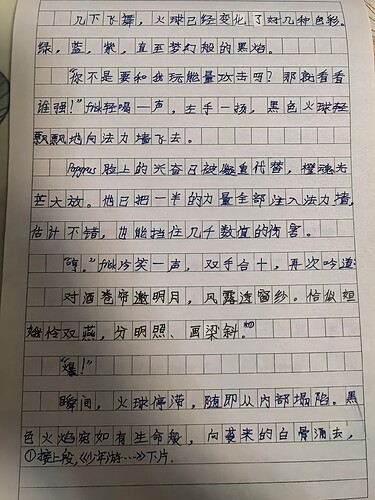 几下飞舞，火球已经变化了好几种色彩。
绿，蓝，紫，直至梦幻般的黑焰。
“你不是要和我玩能量攻击吗？那就看看
谁强！”fhk轻喝一声，左手一扬，黑色火球轻
飘飘地向法力墙飞去。
Papyrus脸上的兴奋已被凝重代替，橙魂光
芒大放。他已把一半的力量全部注入法力墙，
估计不错，也能挡住几千数值的伤害。
“哼。”fhk冷笑一声，双手合十，再次吟道：
对酒卷帘邀明月，风露透窗纱。恰似姮
娥怜双燕，分明照、画梁斜。①
“爆！”
瞬间，火球停滞，随即从内部塌陷。黑
色火焰宛如有生命般，向袭来的白骨涌去，
①接上段，《少年游…》下片.